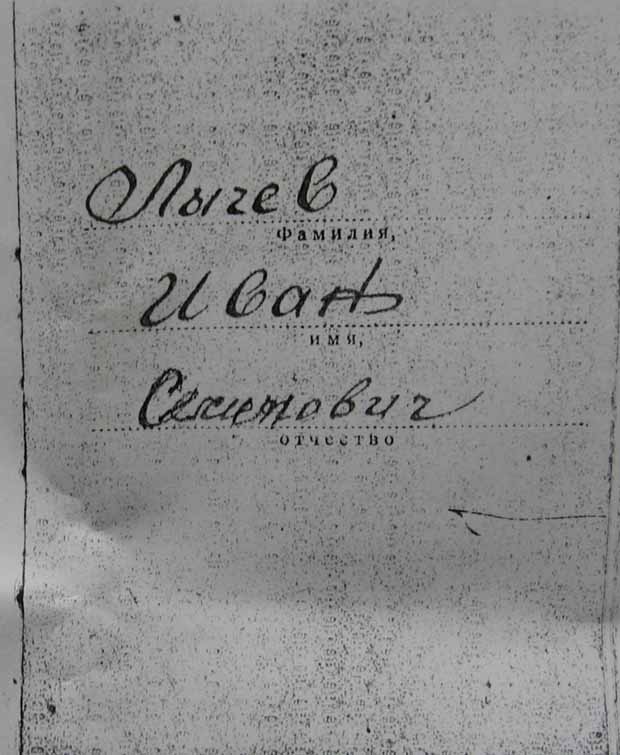 Лычев
Фамилия,
Иванъ
имя,
отчество